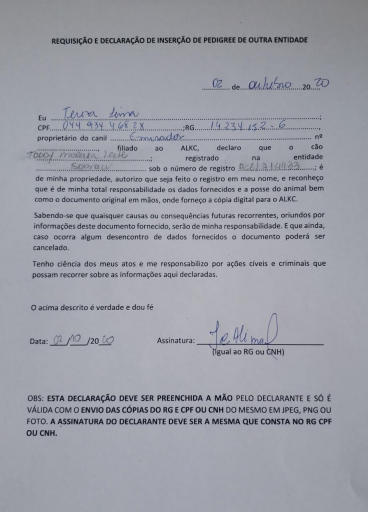 REQUISIÇÃO E DECLARAÇÃO DE INSERÇÃO DE PEDIGREE DE OUTRA ENTIDADE
02 de outubro 20 20
Eu Lima ;
CPF ;RG 14234152-6 ,
proprietário do canil nº
, filiado ao ALKC, declaro que o cão
Toddy ; registrado na entidade
Sobraci sob o número de registro ; é
de minha propriedade, autorizo que seja feito o registro em meu nome, e reconheço
que é de minha total responsabilidade os dados fornecidos e a posse do animal bem
como o documento original em mãos, onde forneço a cópia digital para o ALKC.
Sabendo-se que quaisquer causas ou consequências futuras recorrentes, oriundos por
informações deste documento fornecido, serão de minha responsabilidade. E que ainda,
caso ocorra algum desencontro de dados fornecidos o documento poderá ser
cancelado.
Tenho ciência dos meus atos e me responsabilizo por ações cíveis e criminais que
possam recorrer sobre as informações aqui declaradas.
O acima descrito é verdade e dou fé
Data: 02/10/2020 Assinatura:
(Igual ao RG ou CNH)
OBS: ESTA DECLARAÇÃO DEVE SER PREENCHIDA A MÃO PELO DECLARANTE E SÓ É
VÁLIDA COM O ENVIO DAS CÓPIAS DO RG E CPF OU CNH DO MESMO EM JPEG, PNG OU
FOTO. A ASSINATURA DO DECLARANTE DEVE SER A MESMA QUE CONSTA NO RG CPF
OU CNH.